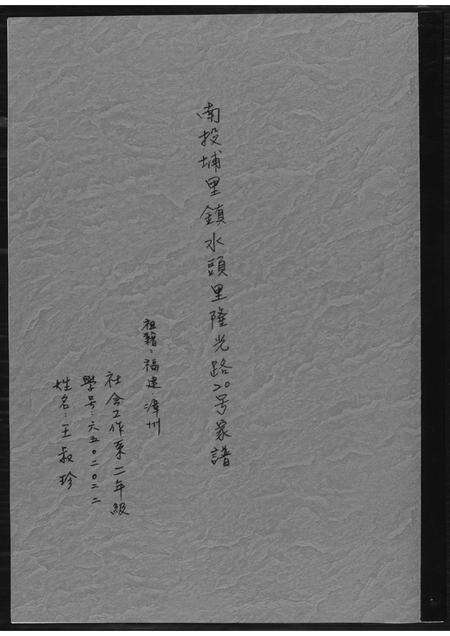 南投埔里鎮水頭里隆光路20号家譜
祖籍：福建漳州
社会工作系二年級
學号：六五0二0二二
姓名：王淑珍